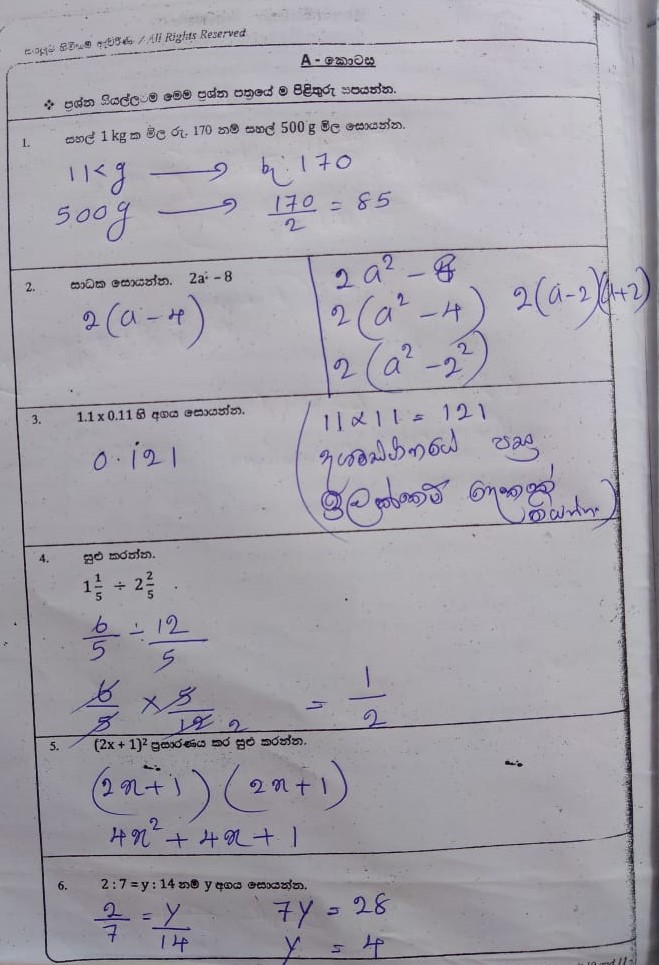 සියලුම හිමිකම් ඇවිරිණි / All Rights Reserved
A - කොටස
❖ ප්‍රශ්න සියල්ලටම මෙම ප්‍රශ්න පත්‍රයේ ම පිළිතුරු සපයන්න.
1. සහල් 1 kg ක මිල රු. 170 නම් සහල් 500 g මිල සොයන්න.
1 kg → රු. 170
500g → 170/2 = 85
2. සාධක සොයන්න. 2a² - 8
2(a - 4)
2a² - 8
2(a² - 4) 2(a-2)(a+2)
2(a² - 2²)
3. 1.1 x 0.11 හි අගය සොයන්න.
0.121
(11 × 11 = 121
දශමස්ථානයේ පසු
ඉලක්කම්
තියන්න)
4. සුළු කරන්න.
1 1/5 ÷ 2 2/5
6/5 ÷ 12/5
6/5 × 5/12 2 = 1/2
5. (2x + 1)² ප්‍රසාරණය කර සුළු කරන්න.
(2x+1) (2x+1)
4x² + 4x + 1
6. 2 : 7 = y : 14 නම් y අගය සොයන්න.
2/7 = y/14 7y = 28
y = 4